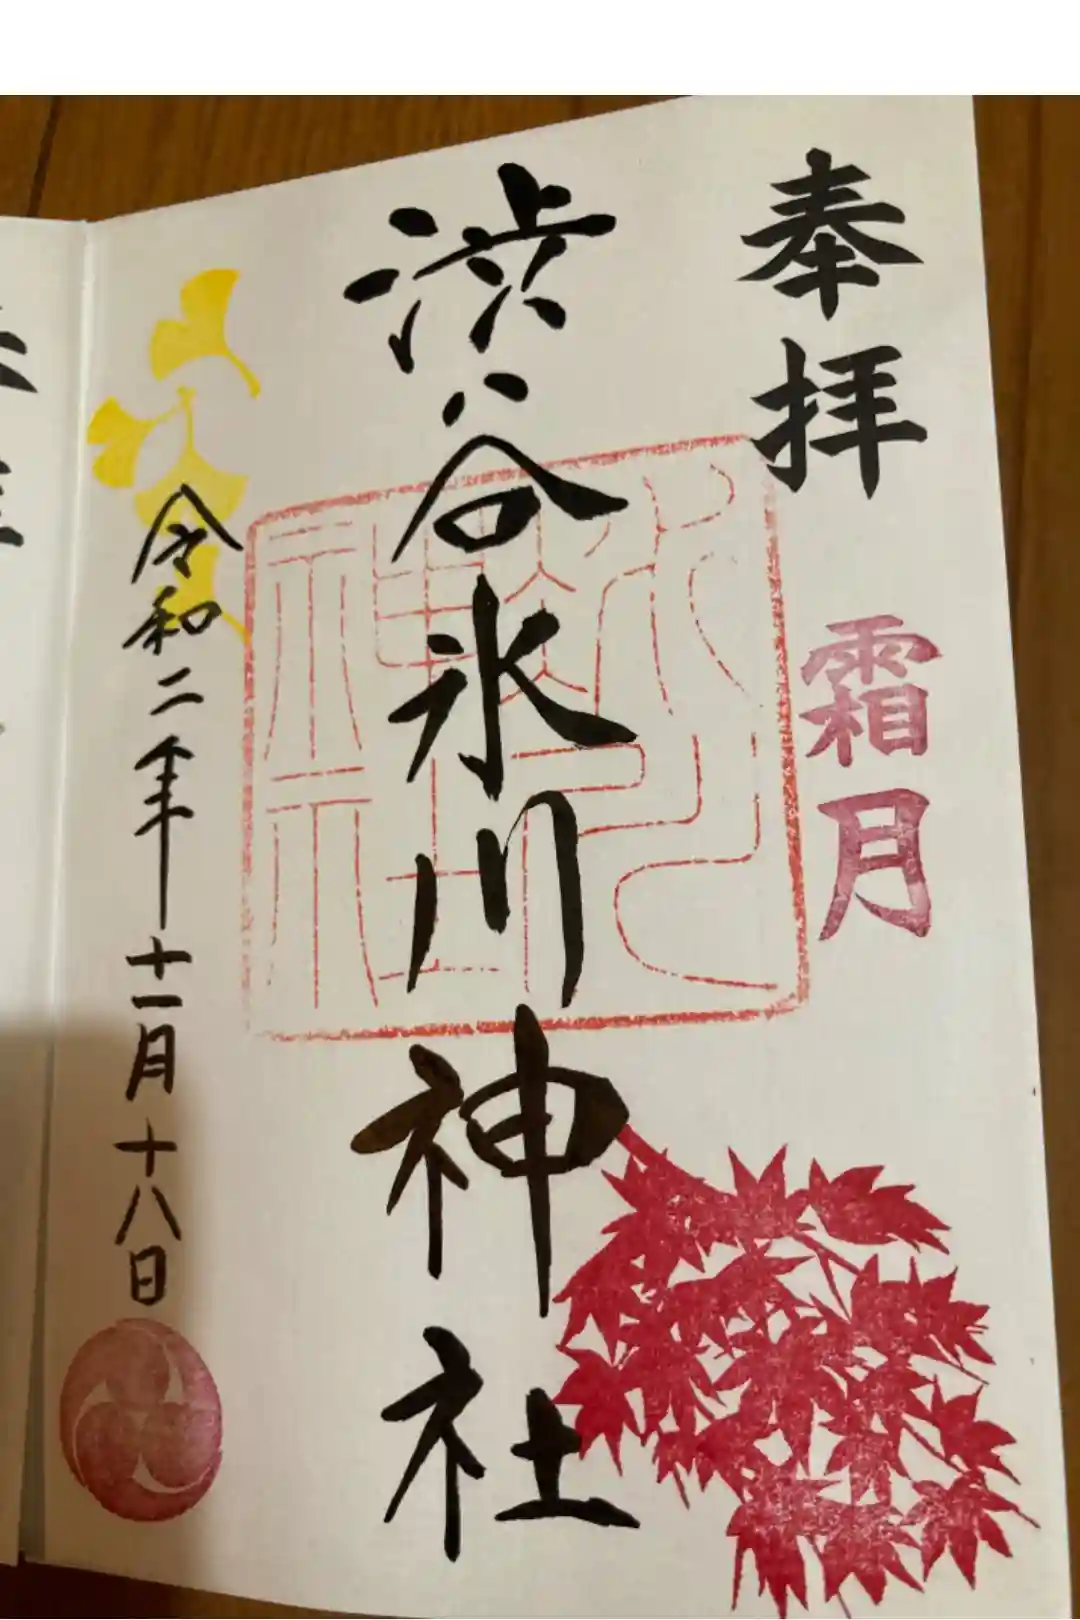 奉拝
霜月
渋谷氷川神社
令和二年十一月十八日